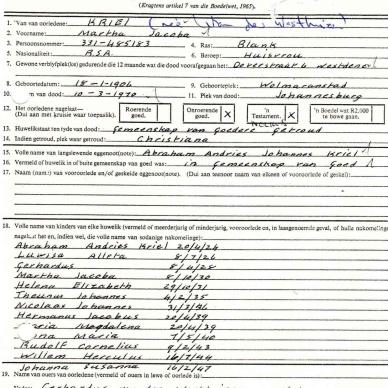 (Kragtens artikel 7 van die Boedelwet, 1965).
1. Van van oorledene: KRIEL (née van der Westhuizen)
2. Voorname: Martha Jacoba
3. Persoonsnommer: 331-485183 4. Ras: Blank
5. Nasionaliteit: R.S.A. 6. Beroep: Huisvrou
7. Gewone verblyfplek(ke) gedurende die 12 maande wat die dood voorafgegaan het: Westdene
8. Geboortedatum: 18-1-1906 9. Geboorteplek: Wolmaranstad
10. van dood: 10-3-1970 11. Plek van dood: Johannesburg
12. Het oorledene nagelaat— (Dui aan met kruise waar toepaslik). Roerende goed. Onroerende goed. X 'n Testament. X 'n Boedel wat R2,500 te bowe gaan.
13. Huwelikstaat ten tyde van dood: Gemeenskap van goedere getroud
14. Indien getroud, plek waar getroud: Christiana
15. Volle name van langslewende eggenoot(note): Abraham Andries Johannes Kriel
16. Vermeld of huwelik in of buite gemeenskap van goed was: in Gemeenskap van Goed
17. Naam (name) van vooroorlede en/of geskeide eggenoot(note). (Dui aan teenoor naam van elkeen of vooroorlede of geskei):
18. Volle name van kinders van elke huwelik (vermeld of meerderjarig of minderjarig, vooroorlede en, in laasgenoemde geval, of hulle nakomelinge
nagelaat het en, indien wel, die volle name van sodanige nakomelinge):
Abraham Andries Kriel 20/4/24
Luwisa Alleta 8/7/26
Gerhardus 8/4/28
Martha Jacoba 8/10/30
Helena Elizabeth 29/10/31
Theunus Johannes 4/2/35
Nicolaas Johannes
Hermanus Jacobus 20/4/39
Magdalena 20/4/39
Maria 7/5/40
Rudolf Cornelius 9/2/43
Willem Herculus 16/7/44
Johanna Susanna 16/2/47
19. Name van ouers van oorledene (vermeld of ouers in lewe of oorlede is):
Gerhardus